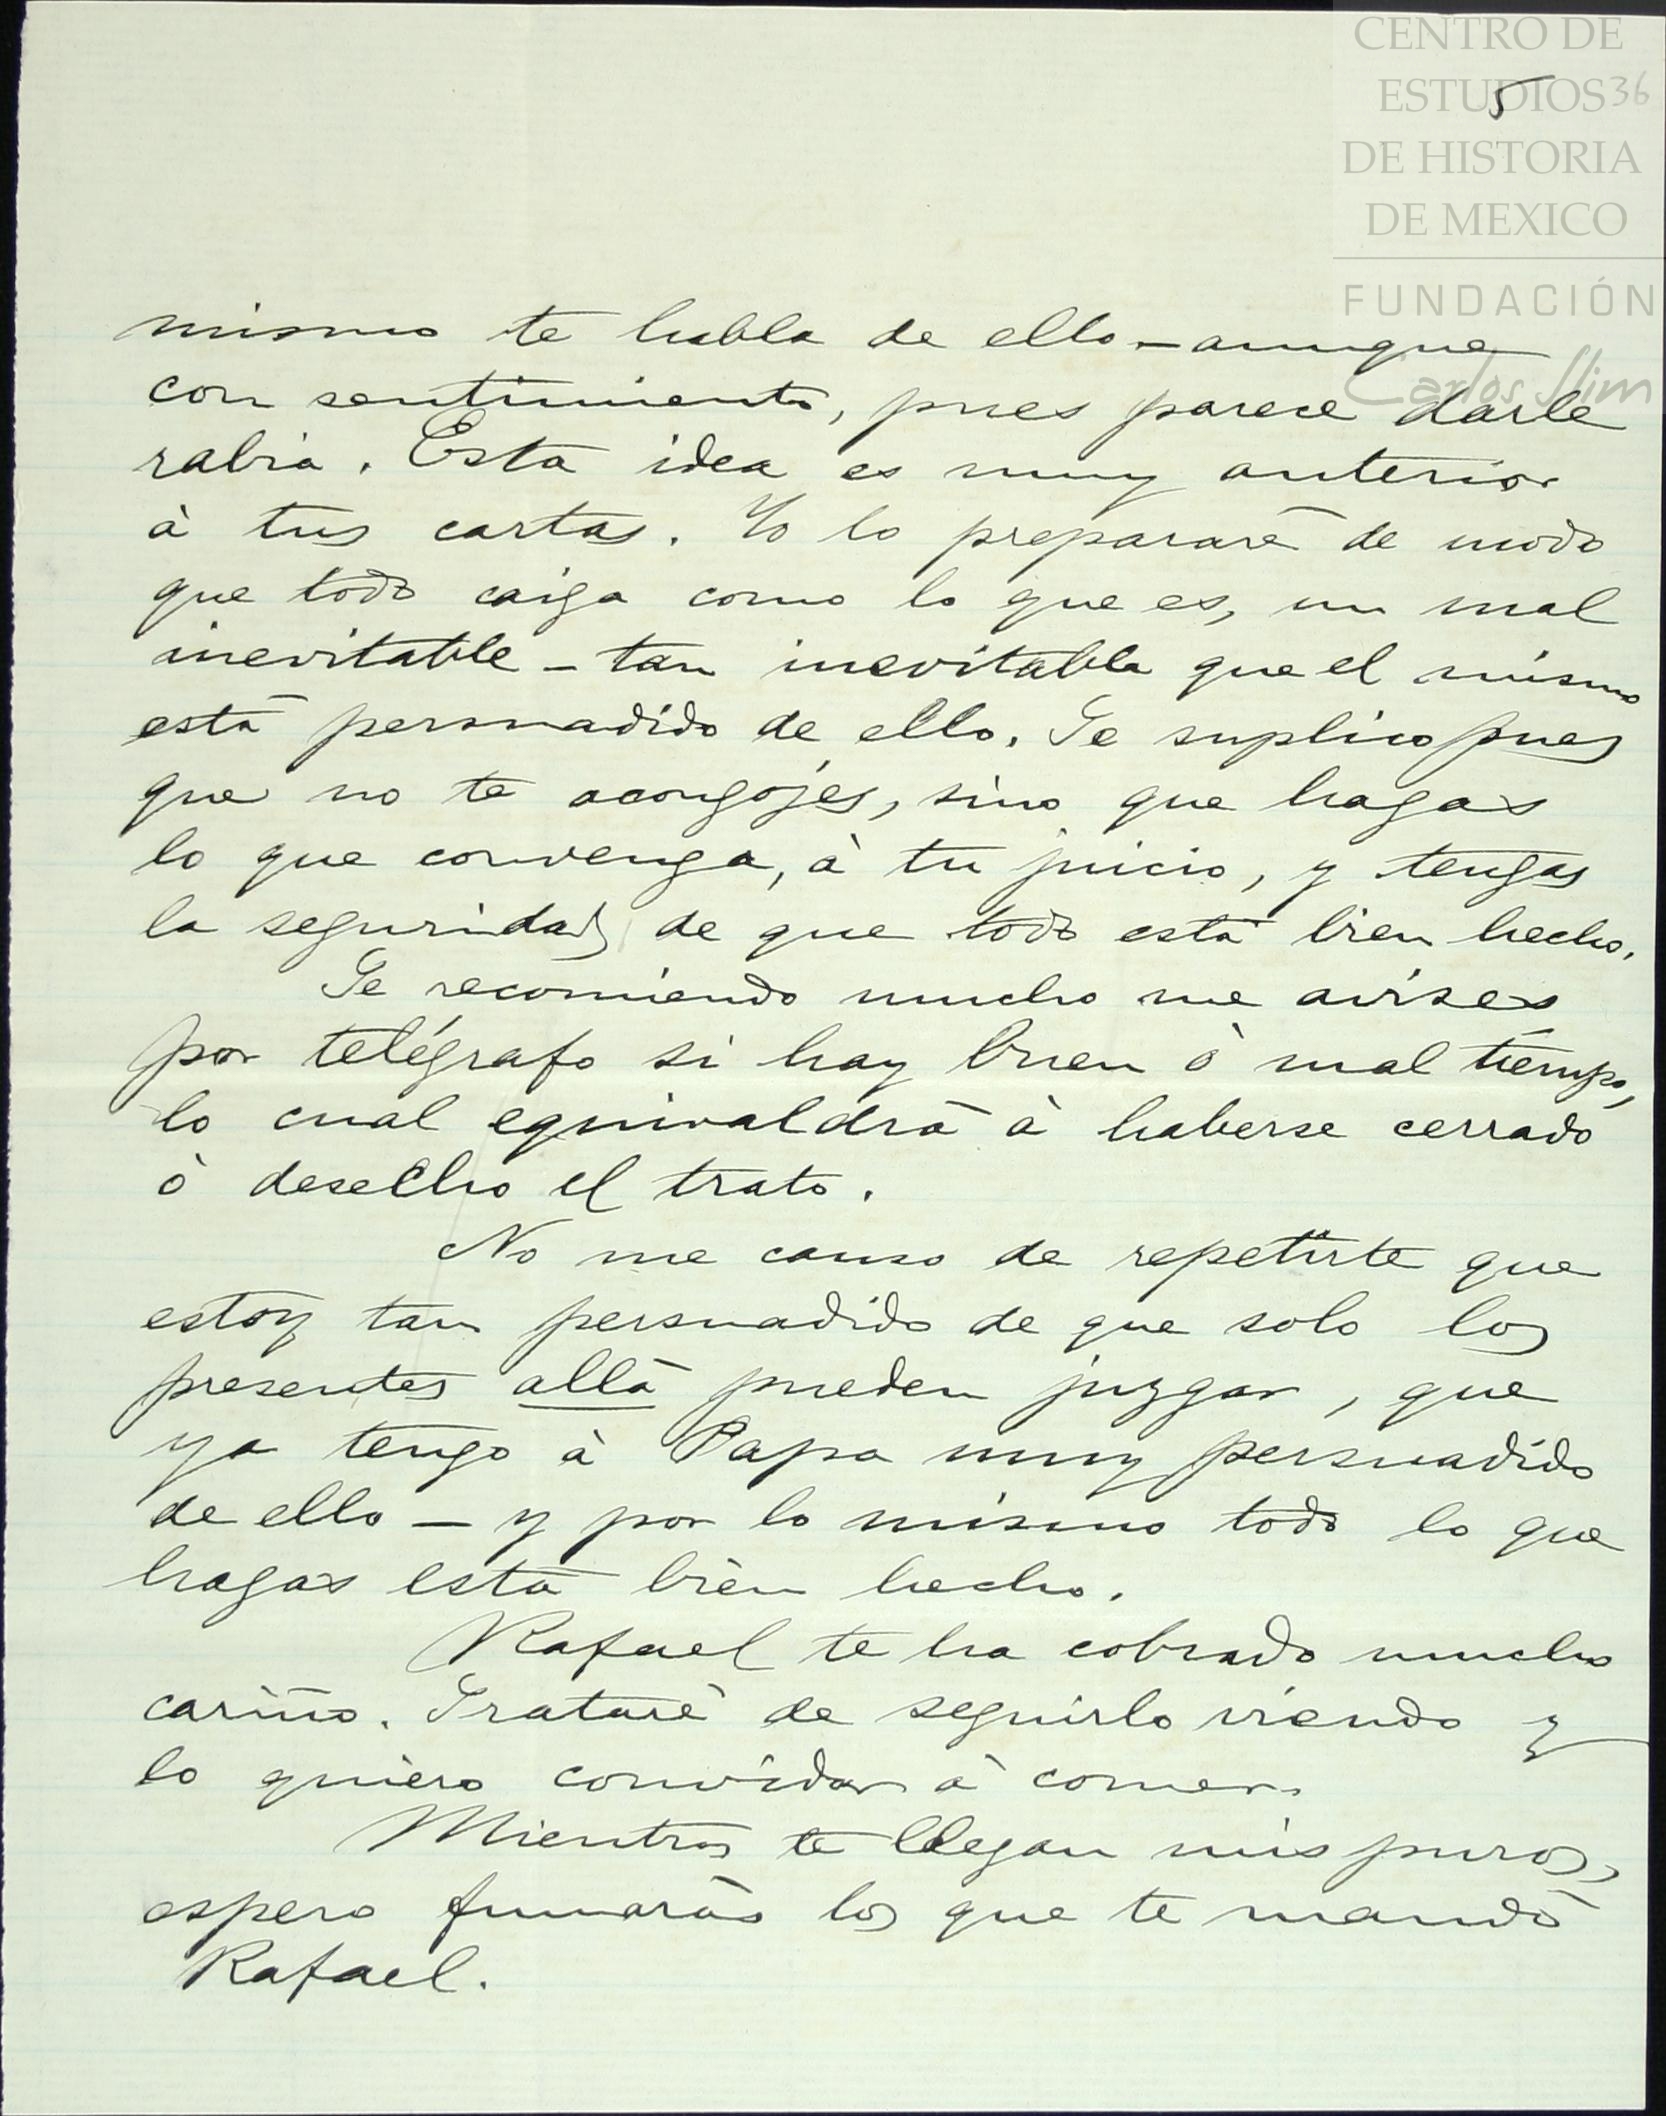 CENTRO DE
ESTUDIOS 36
5
DE HISTORIA
DE MEXICO
FUNDACIÓN
Carlos Slim
mismo te habla de ello – aunque
con sentimiento, pues parece darle
rabia. Esta idea es muy anterior
à tus cartas. Yo lo prepararé de modo
que todo caiga como lo que es, un mal
inevitable – tan inevitable que el mismo
està persuadido de ello. Te suplico pues
que no te acongójes, sino que hagas
lo que convenga, à tu juicio, y tengas
la seguridad de que todo està bien hecho.
Te recomiendo mucho me avises
por telégrafo si hay buen ò mal tiempo,
lo cual equivaldrà à haberse cerrado
ò desecho el trato.
No me canso de repetirte que
estoy tan persuadido de que solo los
presentes allà pueden juzgar, que
ya tengo à Papa muy persuadido
de ello – y por lo mismo todo lo que
hagas està bien hecho.
Rafael te ha cobrado mucho
cariño. Trataré de seguirlo viendo y
lo quiero convidar à comer.
Mientras te llegan mis puros,
espero fumaràs los que te mandò
Rafael.